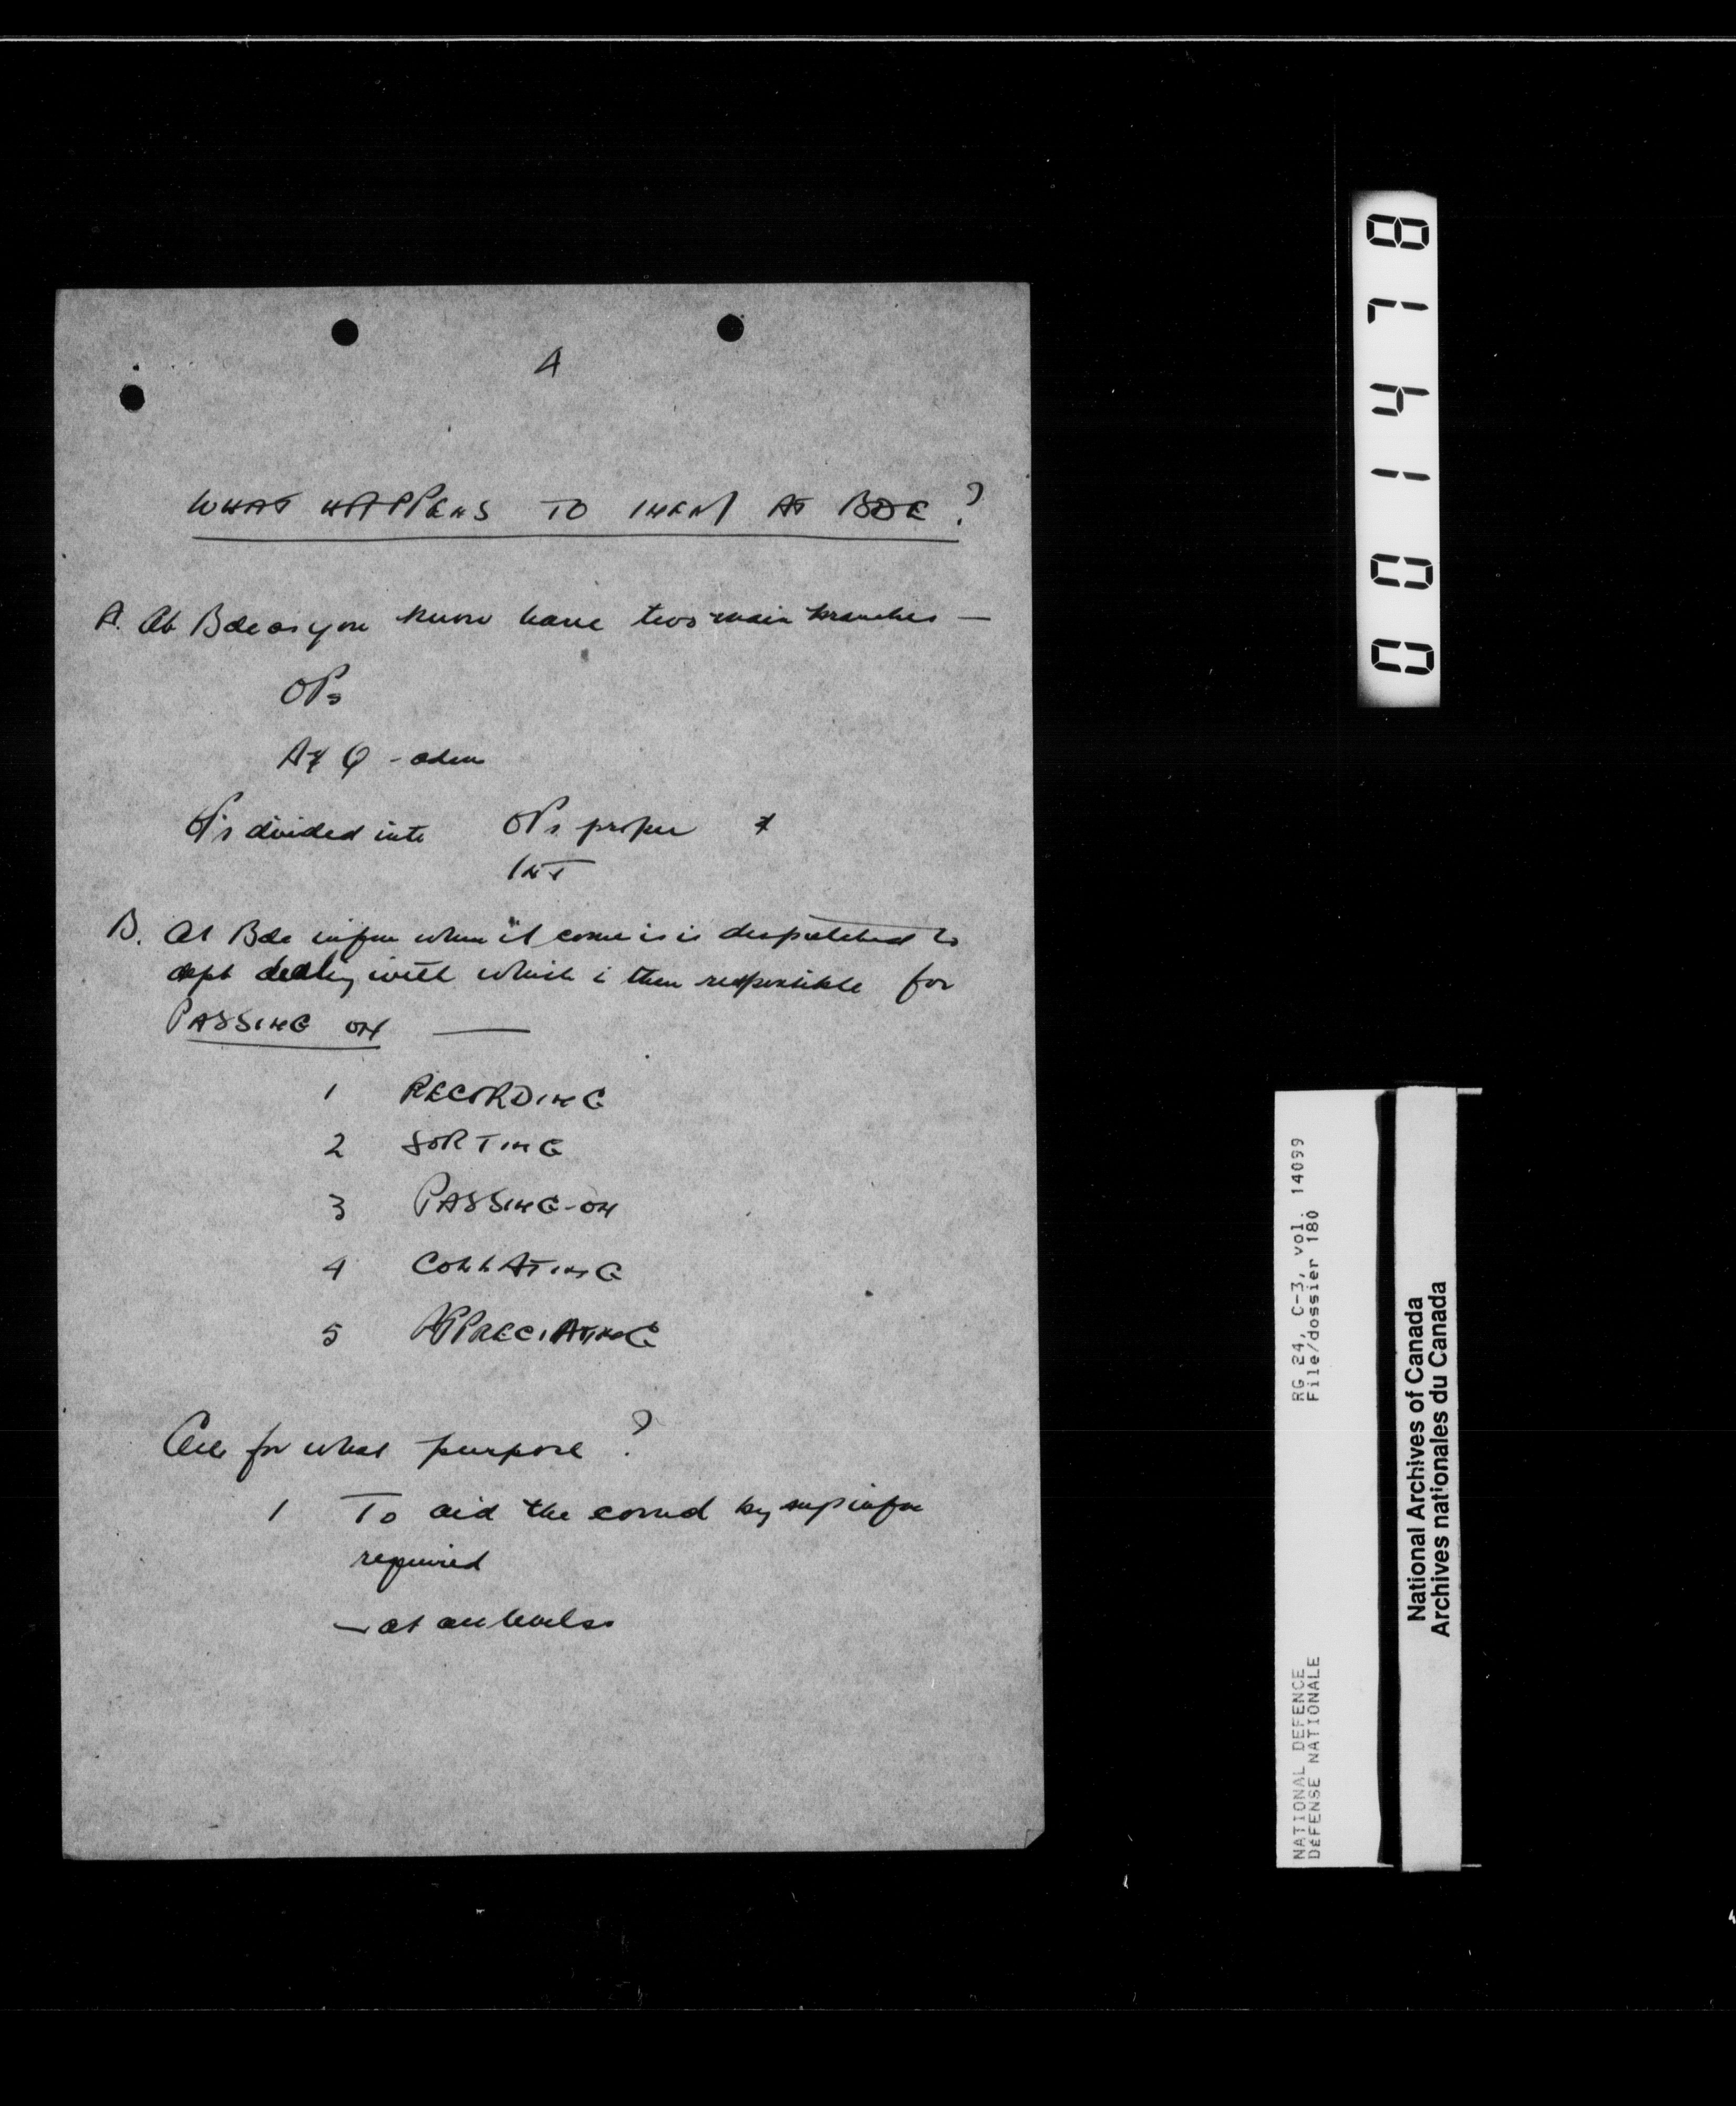 4
WHAT HAPPENS TO THEM AT BDE?
A. At Bde as you know have two main branches —
OPs
A & Q - adm
OPs divided into OPs proper &
INT
B. At Bde infm when it come is is despatched to
dept dealing with which is then responsible for
PASSING ON —
1 RECORDING
2 SORTING
3 PASSING-ON
4 COLLATING
5 APPRECIATING
All for what purpose?
1 To aid the comd by sup infm
required
— at all levels
001478
RG 24, C-3, vol. 14099
File/dossier 180
NATIONAL DEFENCE
DÉFENSE NATIONALE
National Archives of Canada
Archives nationales du Canada